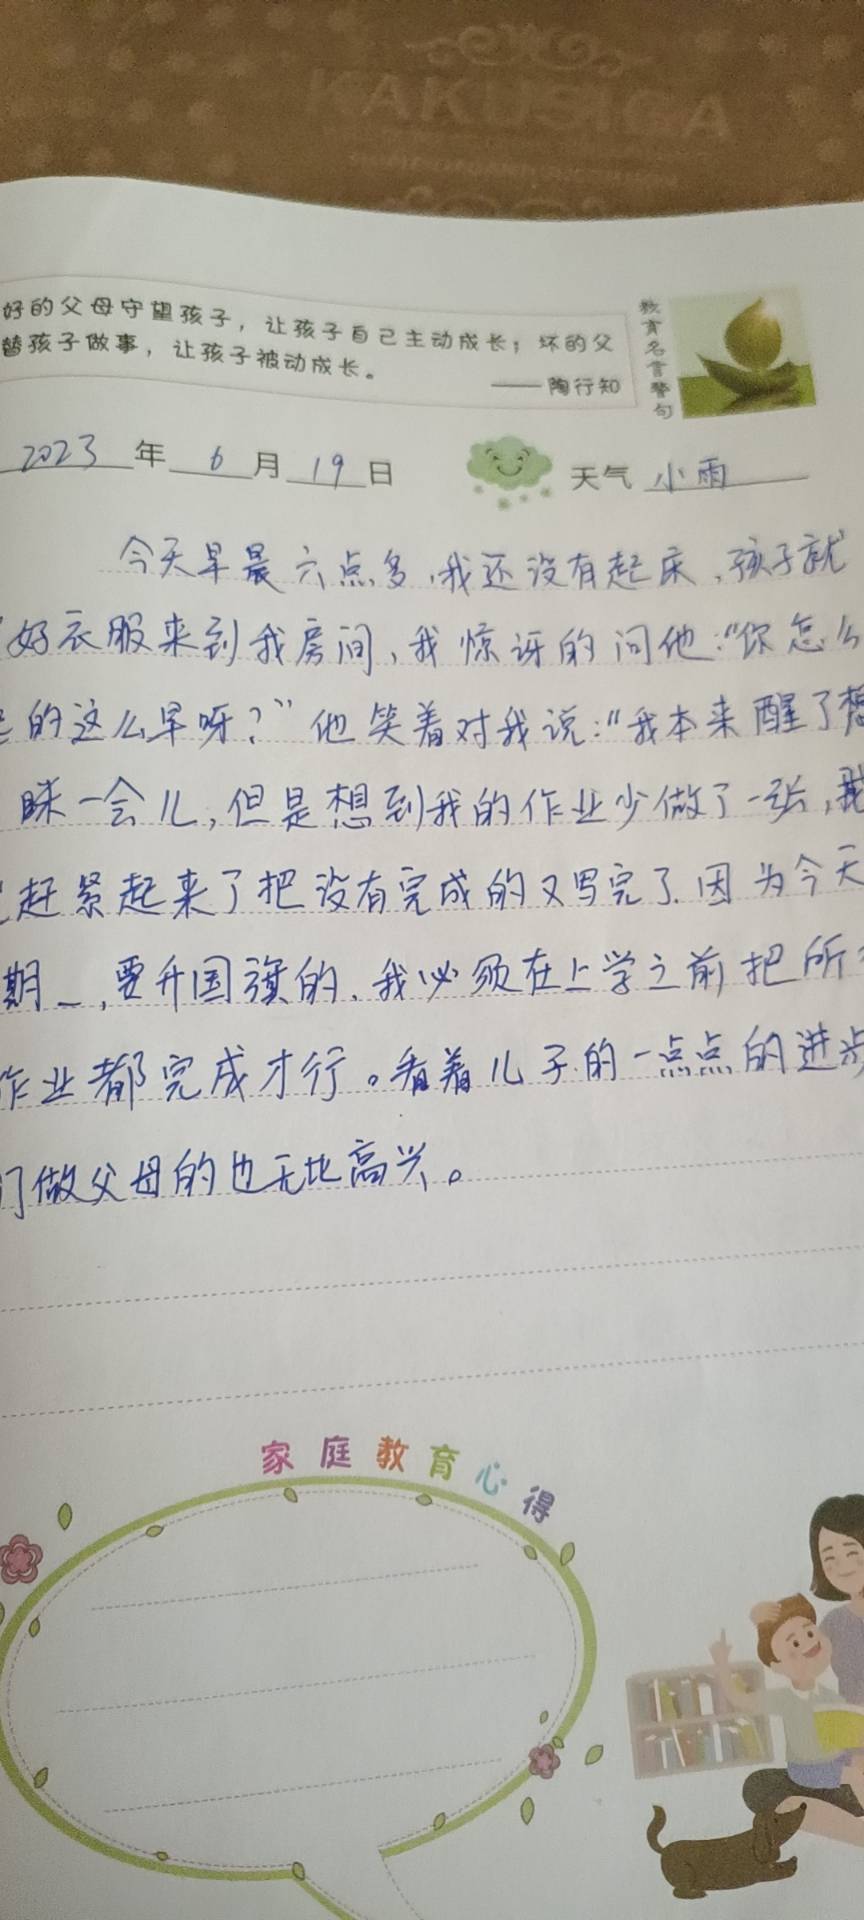 KAKUSIGA
好的父母守望孩子，让孩子自己主动成长；坏的父
替孩子做事，让孩子被动成长。
——陶行知
教育名言警句
2023年6月19日
天气 小雨
今天早晨六点多，我还没有起床，孩子就
好衣服来到我房间，我惊讶的问他："你怎么
的这么早呀？"他笑着对我说："我本来醒了想
眯一会儿，但是想到我的作业少做了一张，我
赶紧起来了把没有完成的又写完了.因为今天
期一，要升国旗的，我必须在上学之前把所
作业都完成才行。看着儿子的一点点的进步
们做父母的也无比高兴。
家庭教育心得